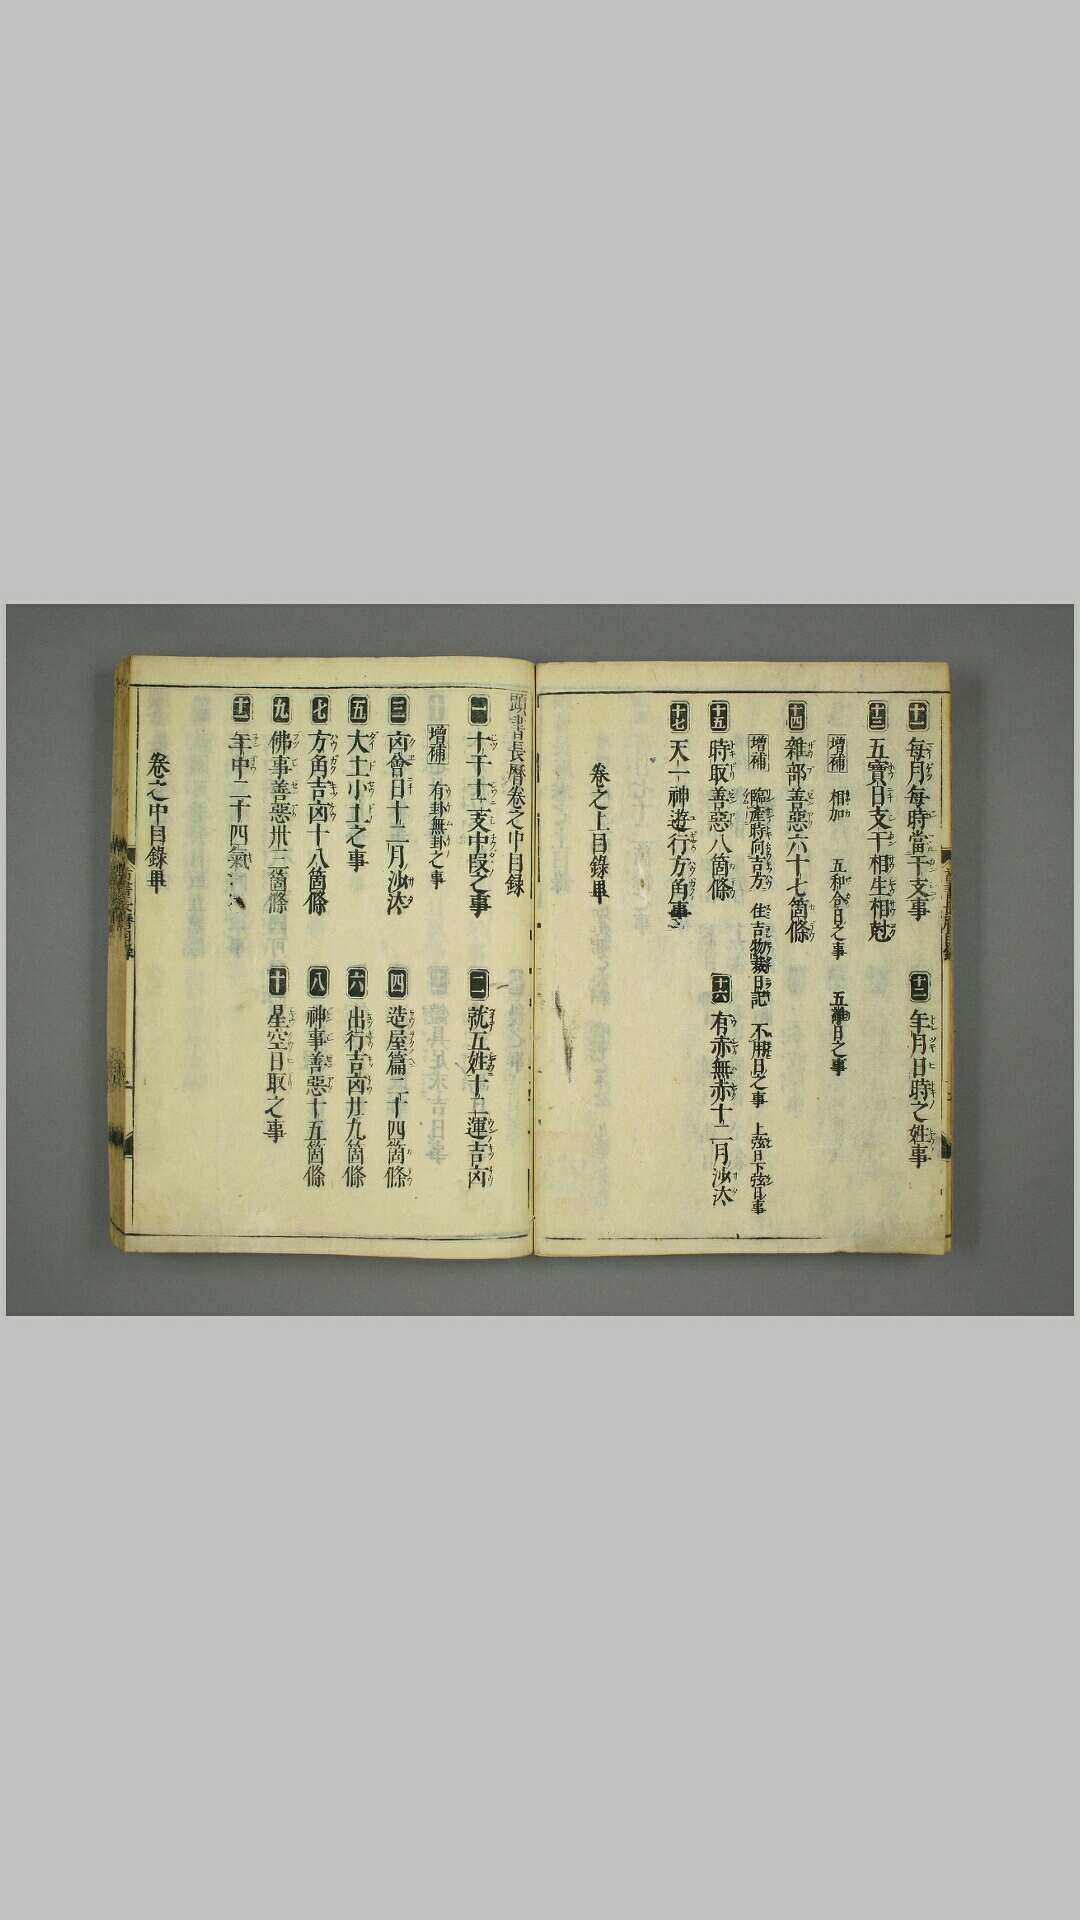 十一 毎月毎時當干支事
十二 年月日時之姓事
十三 五寳日支干相生相尅
増補 相加 五和合日之事 五離日之事
十四 雜部善惡六十七箇條
増補 臨産時向吉方 住吉 日記 不用日之事 上弦日下弦日事
十五 時取善惡八箇條
十六 有赤無赤十二月沙汰
十七 天一神遊行方角事
卷之上目録畢
頭書長暦卷之中目録
一 十干十二支中叚之事
二 就五姓十二運吉凶
増補 有卦無卦之事
三 凶會日十二月沙汰
四 造屋篇二十四箇條
五 大土小土之事
六 出行吉凶廿九箇條
七 方角吉凶十八箇條
八 神事善惡十五箇條
九 佛事善惡卅三箇條
十 星空日取之事
十一 年中二十四氣
卷之中目録畢